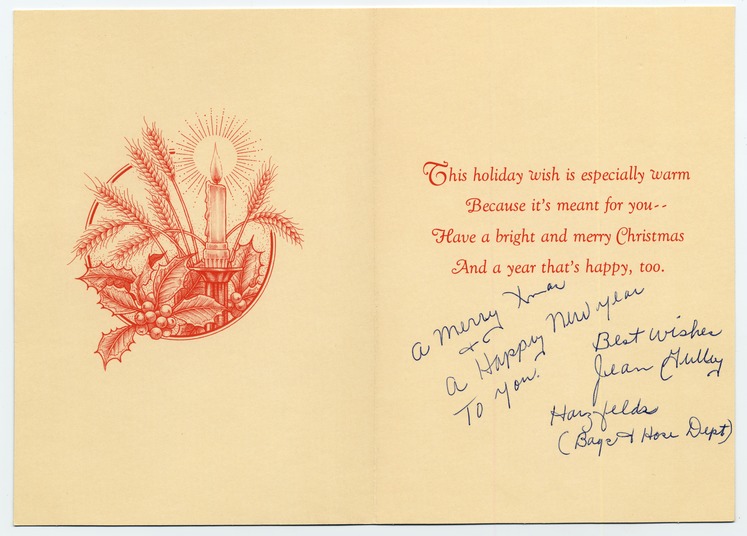 This holiday wish is especially warm
Because it's meant for you--
Have a bright and merry Christmas
And a year that's happy, too.
A Merry Xmas
&
A Happy New Year
To you.
Best Wishes
Jean
Harzfelds
(Bags & Hose Dept)